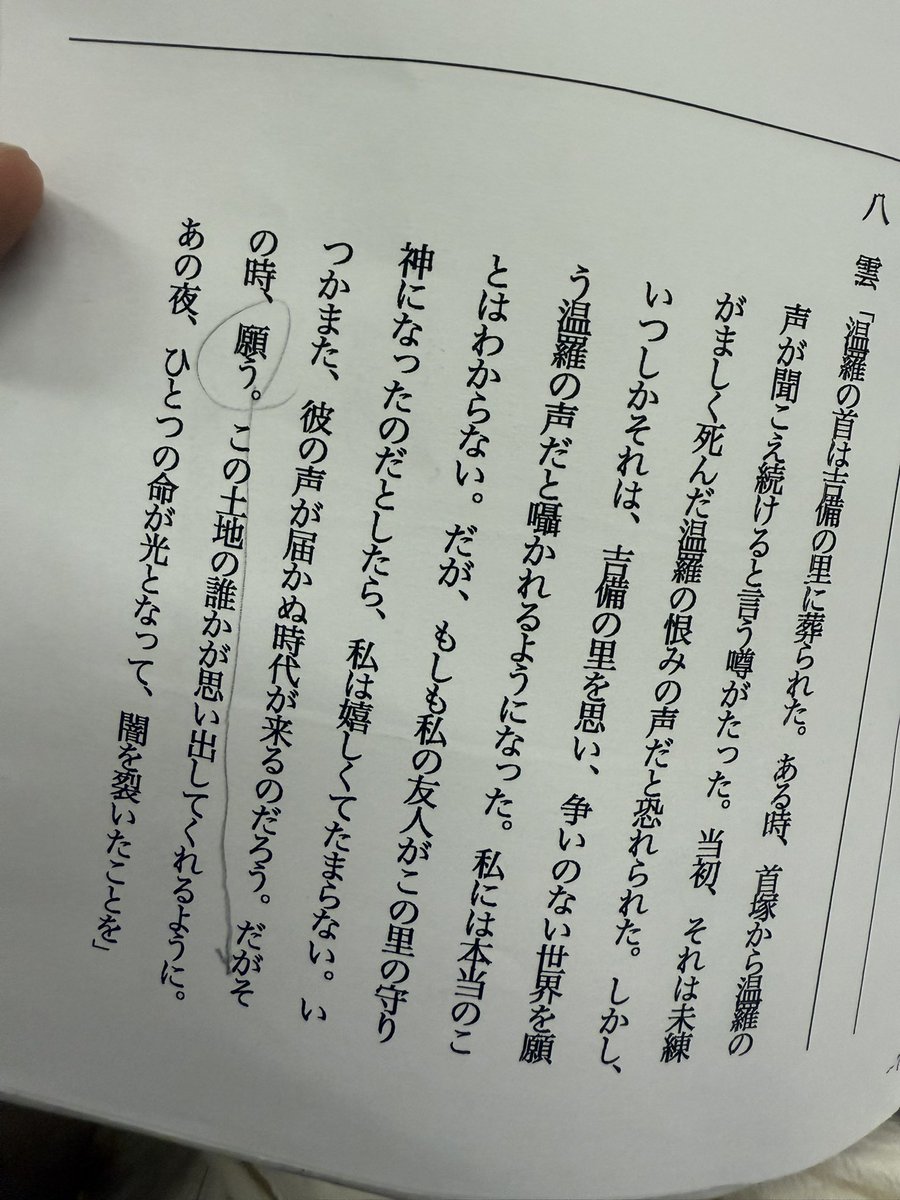 八雲「温羅の首は吉備の里に葬られた。ある時、首塚から温羅の
声が聞こえ続けると言う噂がたった。当初、それは未練
がましく死んだ温羅の恨みの声だと恐れられた。しかし、
いつしかそれは、吉備の里を思い、争いのない世界を願
う温羅の声だと囁かれるようになった。私には本当のこ
とはわからない。だが、もしも私の友人がこの里の守り
神になったのだとしたら、私は嬉しくてたまらない。い
つかまた、彼の声が届かぬ時代が来るのだろう。だがそ
の時、願う。この土地の誰かが思い出してくれるように。
あの夜、ひとつの命が光となって、闇を裂いたことを」